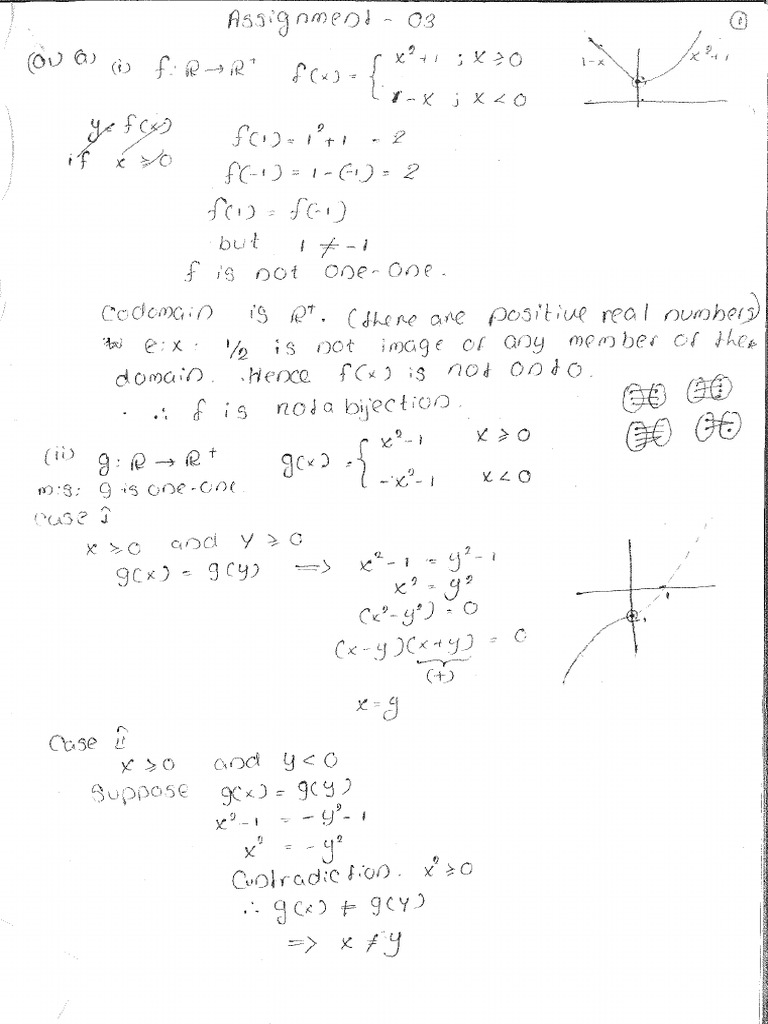 Assignment - 03
1
(01) a) (i) f: R → R⁺ f(x) = { x²+1 ; x ≥ 0
1-x ; x < 0
1-x x²+1
y = f(x)
if x ≥ 0
f(1) = 1²+1 = 2
f(-1) = 1-(-1) = 2
f(1) = f(-1)
but 1 ≠ -1
f is not one-one.
Codomain is R⁺. (there are positive real numbers)
e:x: 1/2 is not image of any member of the
domain. Hence f(x) is not onto.
∴ f is not a bijection.
(ii) g: R → R⁺ g(x) = { x²-1 x ≥ 0
-x²-1 x < 0
m:s: g is one-one
Case I
x ≥ 0 and y ≥ 0
g(x) = g(y) => x²-1 = y²-1
x² = y²
(x²-y²) = 0
(x-y)(x+y) = 0
(+)
x = y
1
Case II
x ≥ 0 and y < 0
Suppose g(x) = g(y)
x²-1 = -y²-1
x² = -y²
Contradiction. x² ≥ 0
∴ g(x) ≠ g(y)
=> x ≠ y